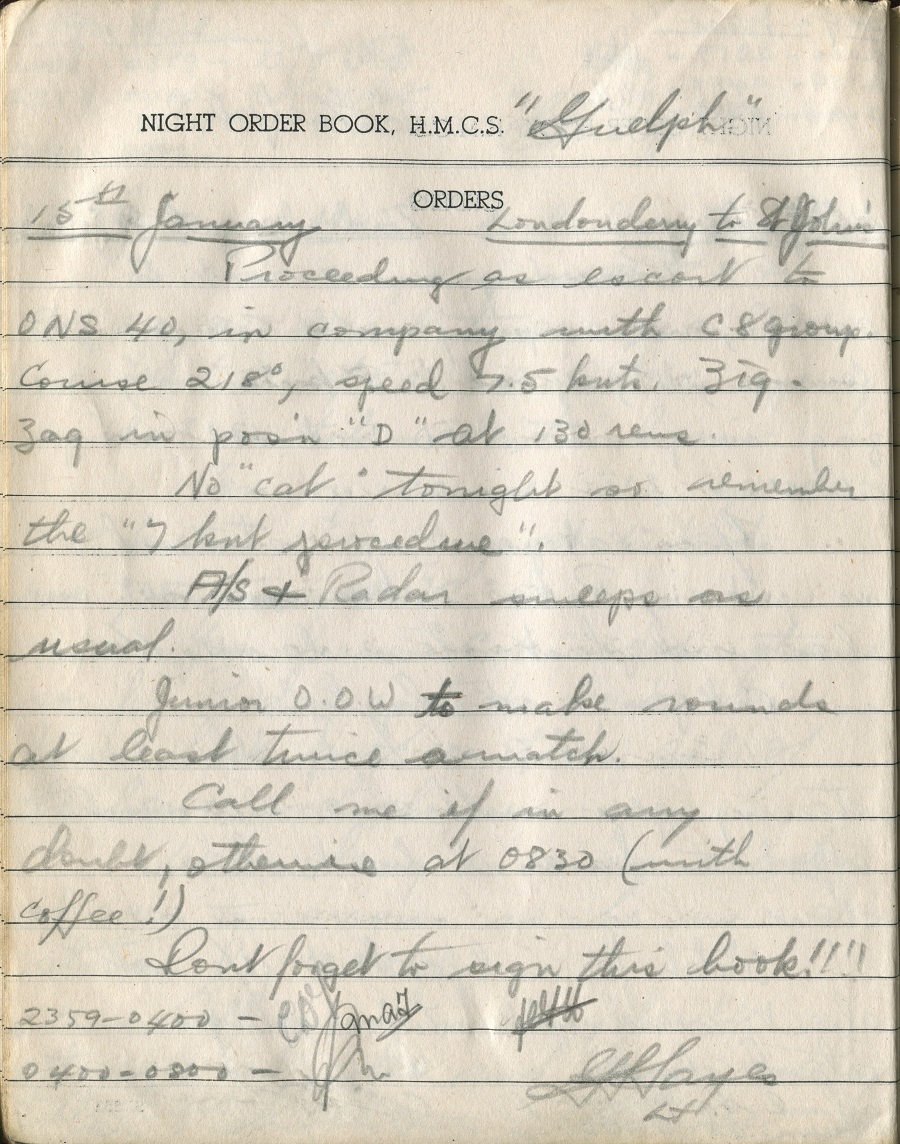 NIGHT ORDER BOOK, H.M.C.S. "Guelph"
ORDERS
15th January Londonderry to St John's
Proceeding as escort to
ONS 40, in company with C8 group.
Course 218°, speed 7.5 knts. Zig-
zag in pos'n "D" at 130 revs.
No "cat" tonight so remember
the "7 knt procedure".
A/S & Radar sweeps as
usual.
Junior O.O.W to make rounds
at least twice a watch.
Call me if in any
doubt, otherwise at 0830 (with
coffee!)
Dont forget to sign this book!!!!
2359-0400 -
0400-0800 -
GHHayes
Lt